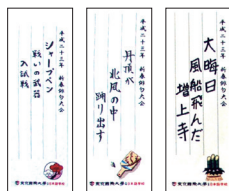 平成二十三年 新春俳句大会
大晦日
風船飛んだ
増上寺
平成二十三年 新春俳句大会
丹頂が
北風の中
踊り出す
平成二十三年 新春俳句大会
シャープペン
戦いの武器
入試戦